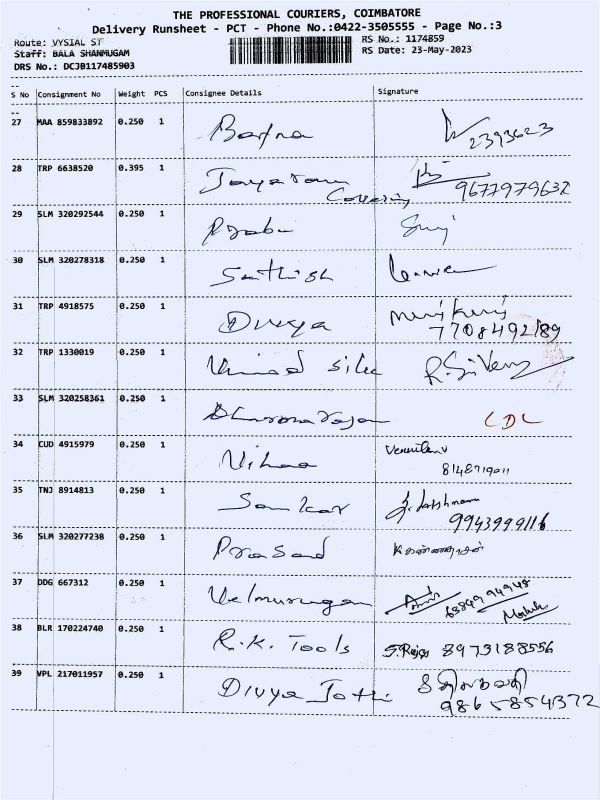 THE PROFESSIONAL COURIERS, COIMBATORE
Delivery Runsheet - PCT - Phone No.:0422-3505555 - Page No.:3
Route: VYSIAL ST
Staff: BALA SHANMUGAM
DRS No.: DCJ0117485903
RS No.: 1174859
RS Date: 23-May-2023
S No Consignment No Weight PCS Consignee Details Signature
27 MAA 859833892 0.250 1
2393623
28 TRP 6638520 0.395 1 Jayaram
Covering 9677979632
29 SLM 320292544 0.250 1 Prabu
30 SLM 320278318 0.250 1 Sathish
31 TRP 4918575 0.250 1 Divya
7708492189
32 TRP 1330019 0.250 1 Vinod silk
33 SLM 320258361 0.250 1 Dhrmarajan CDL
34 CUD 4915979 0.250 1
8148719011
35 TNJ 8914813 0.250 1 Sankar
9943999116
36 SLM 320277238 0.250 1 Prasand
37 DDG 667312 0.250 1 Velmurugan 6384994948
38 BLR 170224740 0.250 1 R.K. Tools S.Raja 8973188556
39 VPL 217011957 0.250 1 Divya Jothi
9865854372